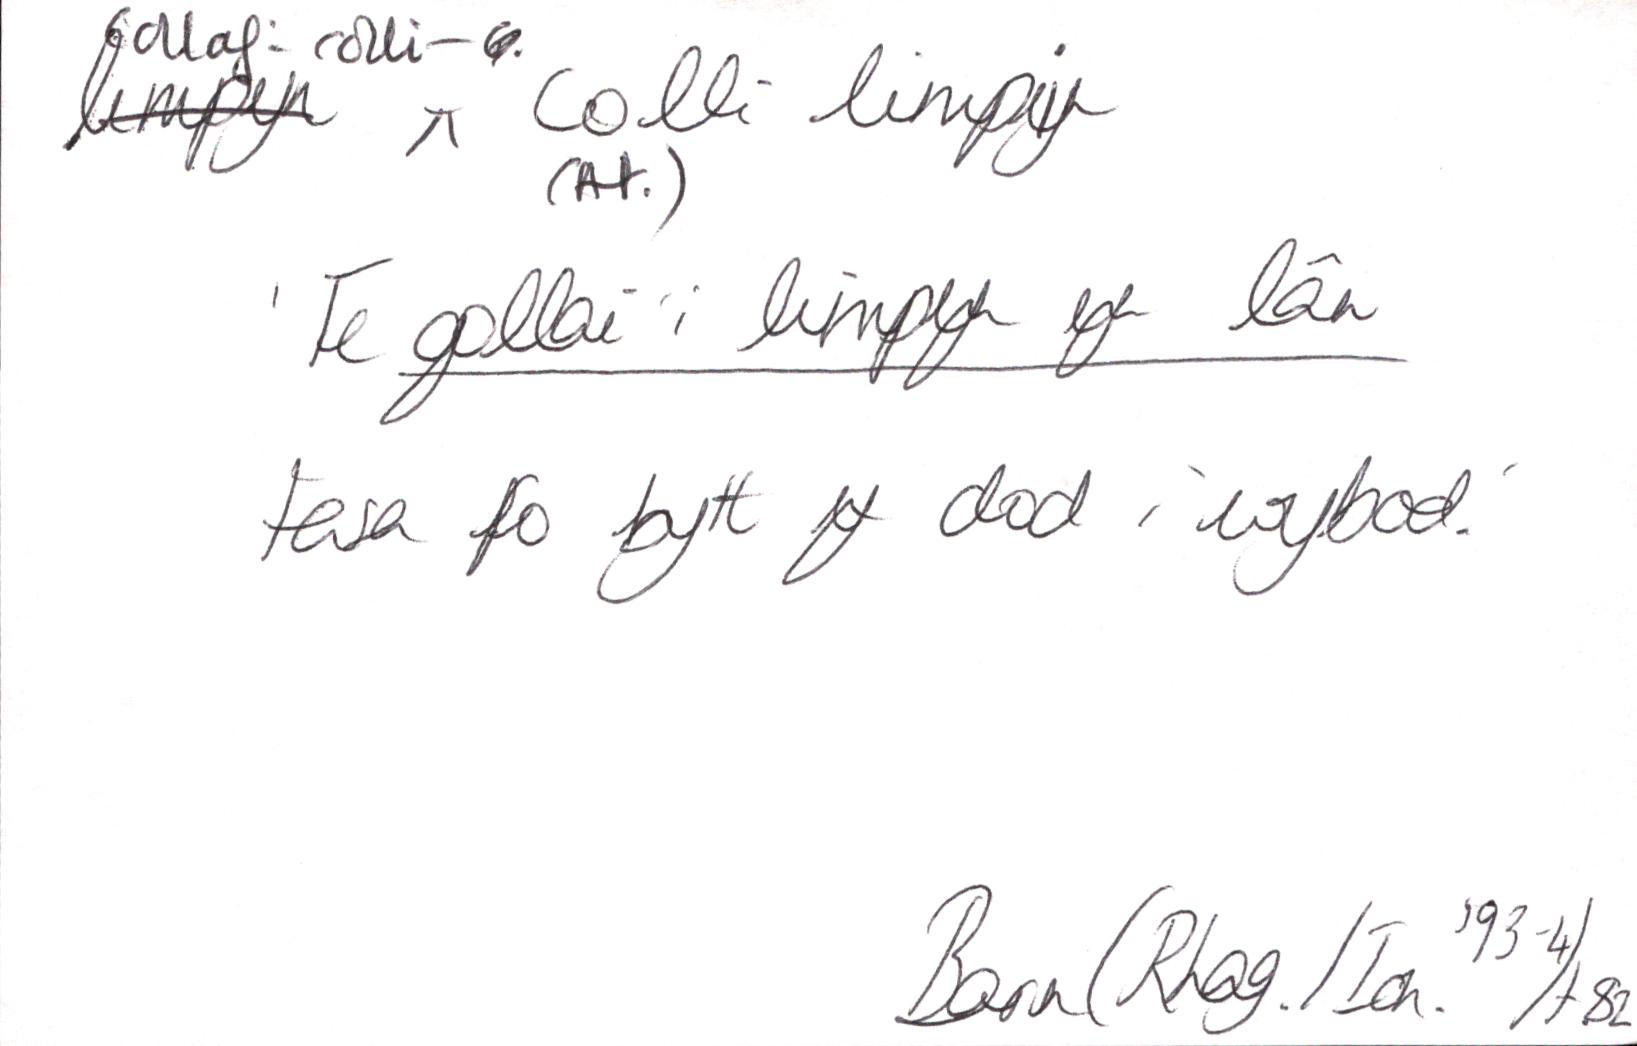 collaf: colli - G.
limpyn ⋏ Colli limpyn
(At.)
'Fe gollai i limpyn yn lân
tasa fo byth yn dod i wybod.'
Barn (Rhag./Ion. '93-4) t 82